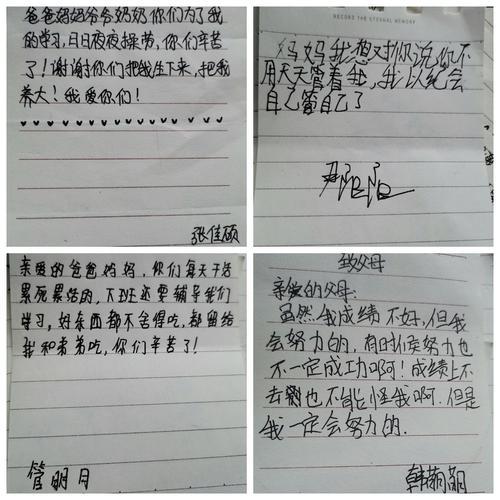 爸爸妈妈爷爷奶奶你们为了我
的学习,日日夜夜操劳,你们辛苦
了!谢谢你们把我生下来,把我
养大!我爱你们!
张佳硕
RECORD THE ETERNAL MEMORY
妈妈我想对你说你不
用天天管着我,我以纪会
自己管自己了
亲爱的爸爸妈妈,你们每天干活
累死累活的,下班还要辅导我们
学习,好东西都不舍得吃,都留给
我和弟弟吃,你们辛苦了!
管明月
致父母
亲爱的父母:
虽然我成绩不好,但我
会努力的,有时候努力也
不一定成功啊!成绩上不
去也不能怪我啊.但是
我一定会努力的.
韩萌萌